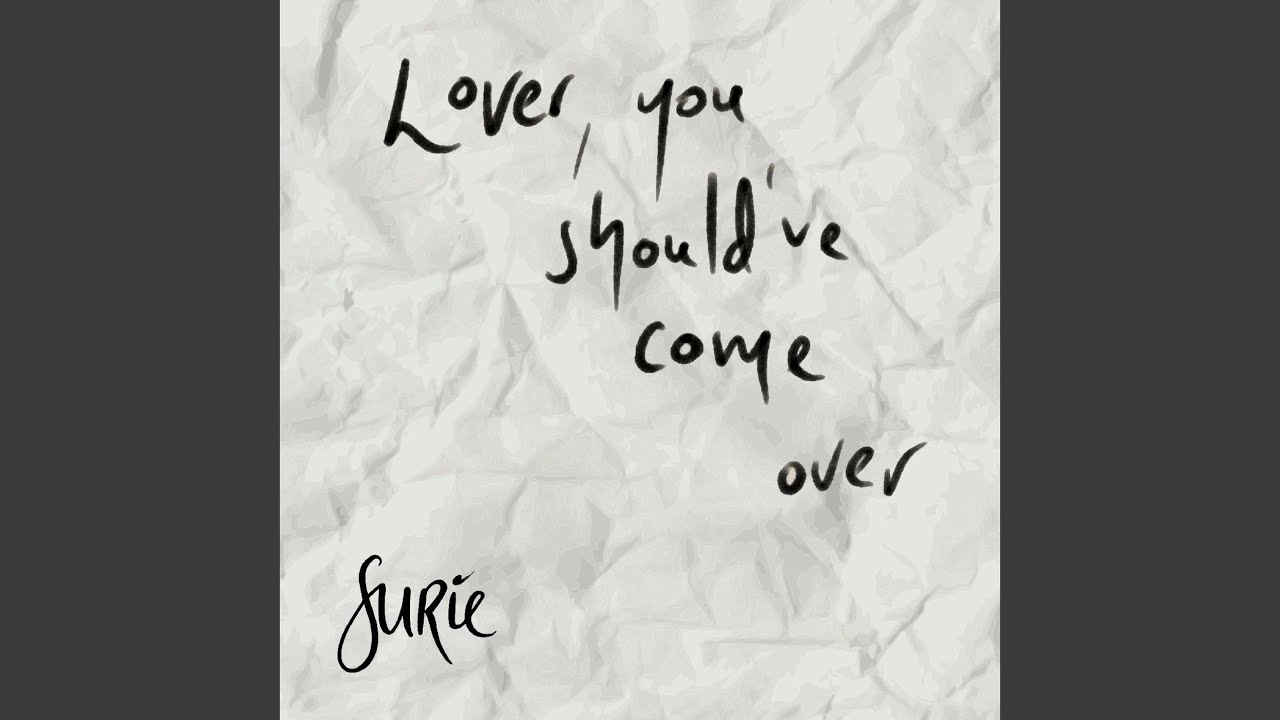 Lover, you
should've
come
over
SURiE